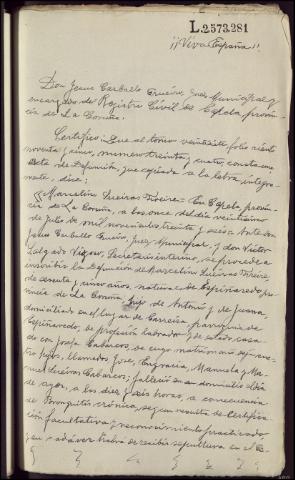 L.2573.281
¡¡Viva España!!
Don Jesus Carballo Crueiro, Juez Municipal y
encargado de Registro Civil de Capela, provin-
cia de La Coruña.
Certifico: Que al tomo veintisiete folio ciento
noventa y cinco, numero treinta y cuatro, consta un
acta de defunción, que copiada a la letra integra-
mente, dice:
En Capela provin-
cia de La Coruña, a las once del día veintiuno
de julio de mil novecientos treinta y seis: Ante Don
Jesus Carballo Crueiro, Juez Municipal, y don Victor
Salgado Secretario interino, se procede a
inscribir la defunción de Marcelino
de sesenta y cinco años, natural de Espiñaredo pro-
vincia de La Coruña, hijo de Antonio y de Juana
domiciliado en el lugar de parroquia de
Espiñaredo, de profesión labrador y de estado casa-
do con Josefa Cabarcos de cuyo matrimonio
hijos, llamados José, Engracia, Manuela y Ma-
nuel Cabarcos; falleció en su domicilio el día
de ayer, a las diez y seis horas, a consecuencia
de Bronquitis crónica, según resulta de certifica-
ción facultativa y reconocimiento practicado
y su cadáver habra de recibir sepultura en el